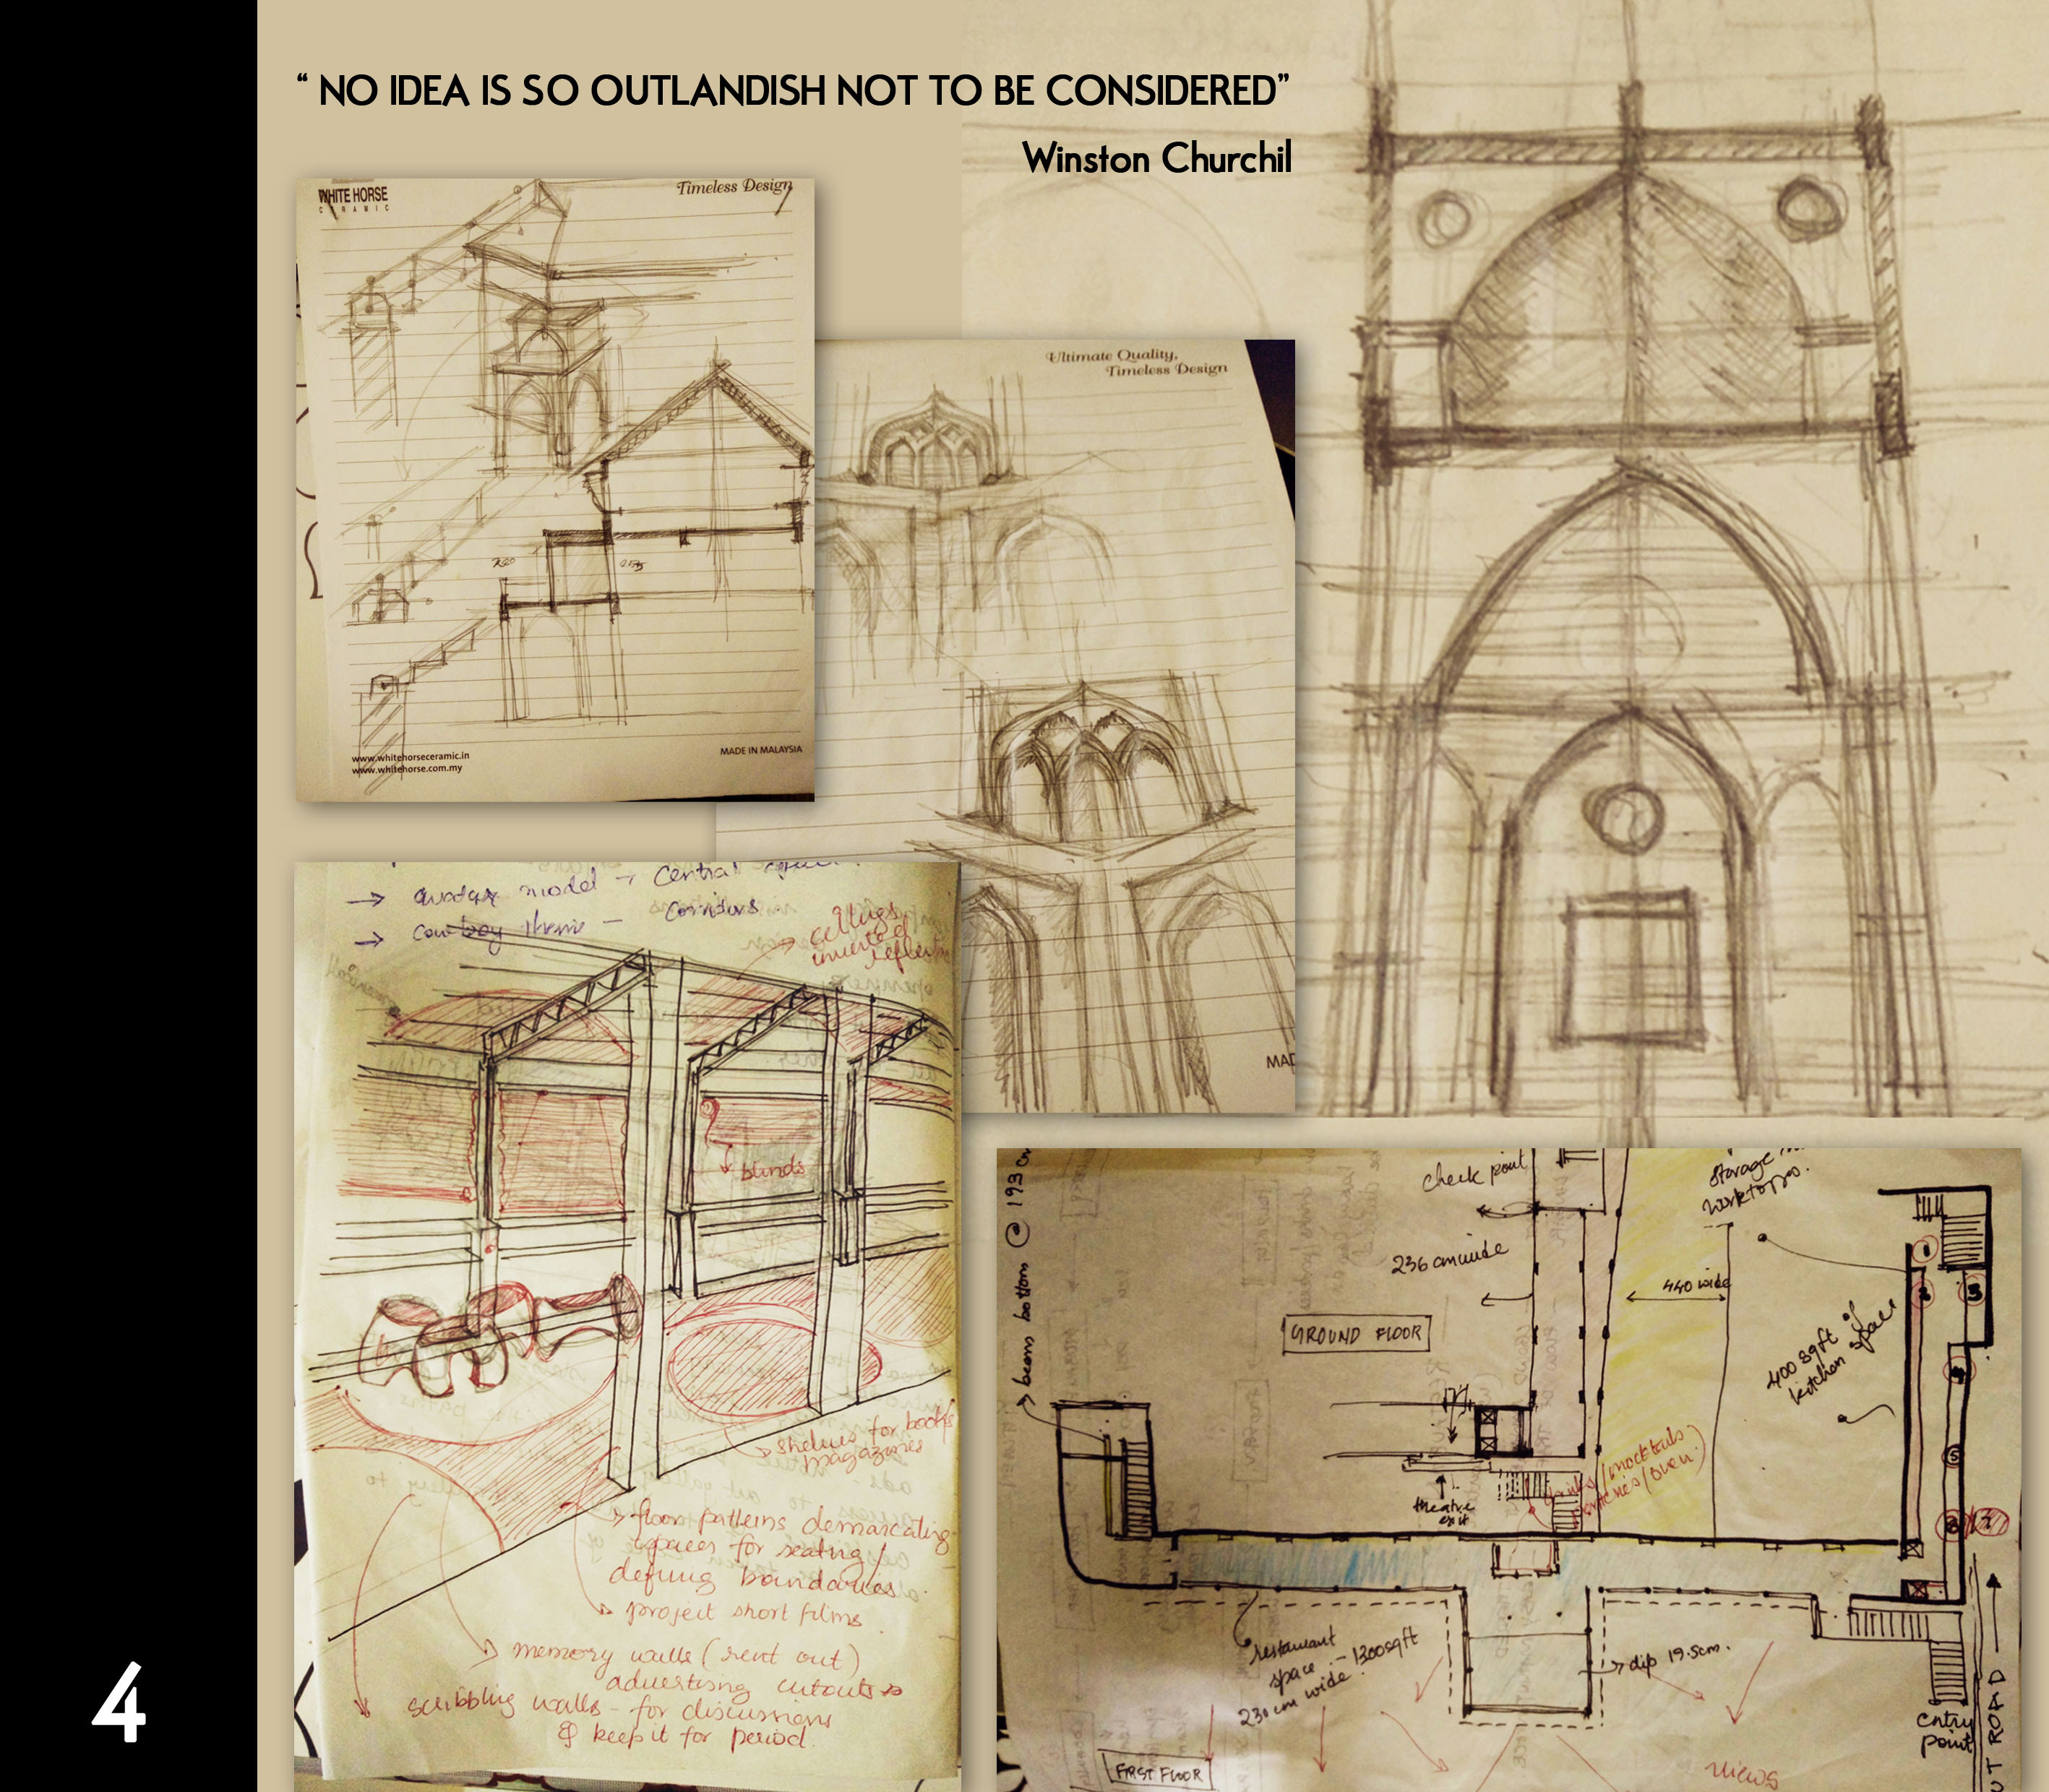 “ NO IDEA IS SO OUTLANDISH NOT TO BE CONSIDERED”
Winston Churchil
WHITE HORSE
CERAMIC
Timeless Design
260
www.whitehorseceramic.in
www.whitehorse.com.my
MADE IN MALAYSIA
Ultimate Quality,
Timeless Design
MAD
→ avatar model → central
→ cowboy theme – corridors
ceilings
inverted
blinds
shelves for books
magazines
floor patterns demarcating
spaces for seating /
defining boundaries
project short films
memory walls (rent out)
advertising cutouts
scribbling walls – for discussions
& keep it for period.
→ beams bottom @ 193 cm
check point
236 cm wide
GROUND FLOOR
storage
worktops.
440 wide
400 sqft of
kitchen space
1
2
3
5
theatre
exit
drinks/mocktails
/oven)
restaurant
space – 1300sqft
230 cm wide.
dip 19.5cm.
FIRST FLOOR
views
entry
point
UT ROAD →
4